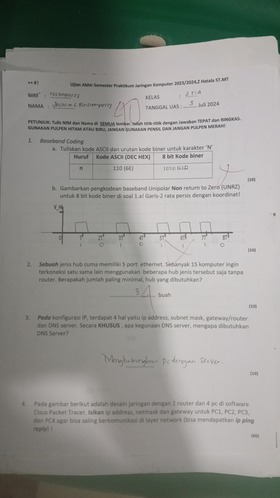 Ujian Akhir Semester Praktikum Jaringan Komputer 2023/2024,Z Hatala ST.MT
NIM :
KELAS :
NAMA :
TANGGAL UAS : 5 Juli 2024
PETUNJUK: Tulis NIM dan Nama di SEMUA lembar. Isilah titik-titik dengan Jawaban TEPAT dan RINGKAS.
GUNAKAN PULPEN HITAM ATAU BIRU, JANGAN GUNAKAN PENSIL DAN JANGAN PULPEN MERAH!
1. Baseband Coding
a. Tuliskan kode ASCII dan urutan kode biner untuk karakter 'N'
Huruf Kode ASCII (DEC HEX) 8 bit Kode biner
n 110 (6E)
(10)
b. Gambarkan pengkodean baseband Unipolar Non return to Zero (UNRZ)
untuk 8 bit kode biner di soal 1.a! Garis-2 rata persis dengan koordinat!
(10)
2. Sebuah jenis hub cuma memiliki 5 port ethernet. Sebanyak 15 komputer ingin
terkoneksi satu sama lain menggunakan beberapa hub jenis tersebut saja tanpa
router. Berapakah jumlah paling minimal, hub yang dibutuhkan?
buah
(10)
3. Pada konfigurasi IP, terdapat 4 hal yaitu ip address, subnet mask, gateway/router
dan DNS server. Secara KHUSUS , apa kegunaan DNS server, mengapa dibutuhkan
DNS Server?
Menghubungkan pc dengan Server.
(10)
4. Pada gambar berikut adalah desain jaringan dengan 1 router dan 4 pc di software
Cisco Packet Tracer. Isikan ip address, netmask dan gateway untuk PC1, PC2, PC3,
dan PC4 agar bisa saling berkomunikasi di layer network (bisa mendapatkan ip ping
reply) !